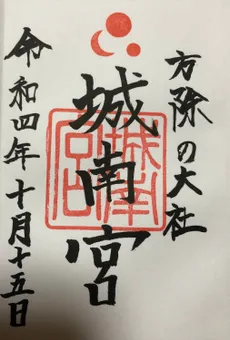 方除の大社
城南宮
令和四年十月十五日
城南宮印